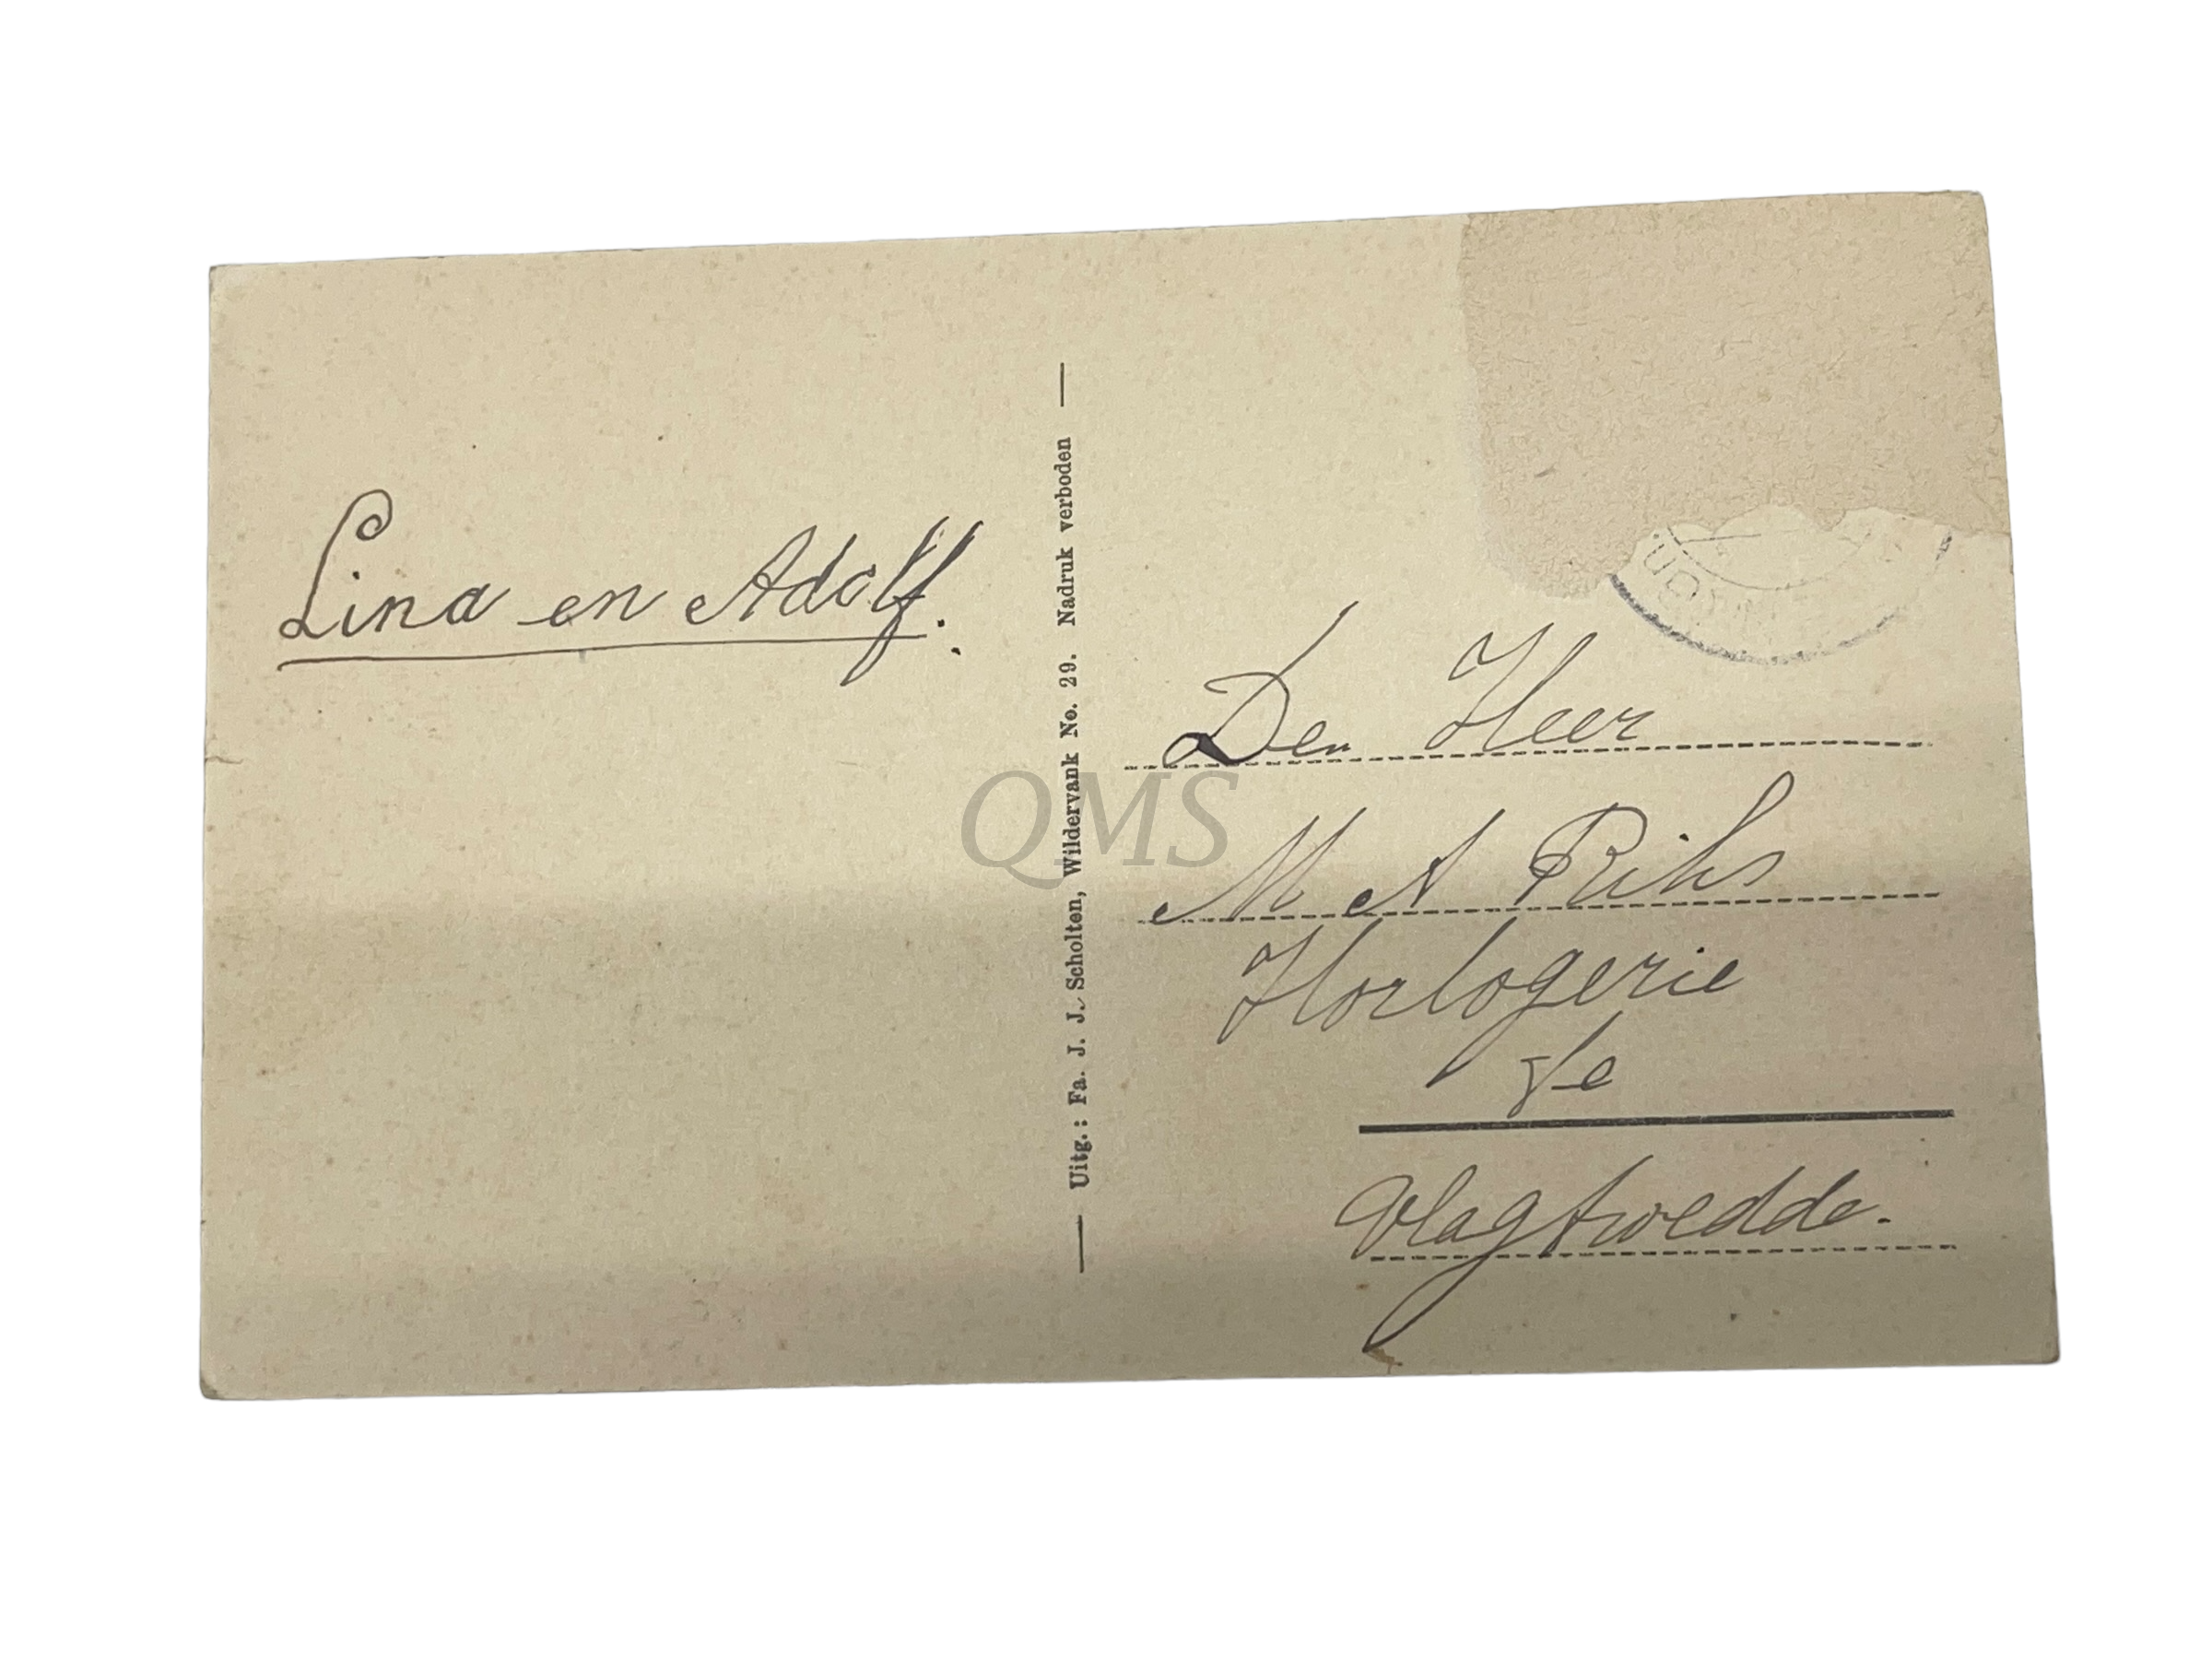 Lina en Adolf.
Uitg.: Fa. J. J. Scholten, Wildervank No. 29. Nadruk verboden
Den Heer
M A
Horlogerie
te
Vlagtwedde.
QMS